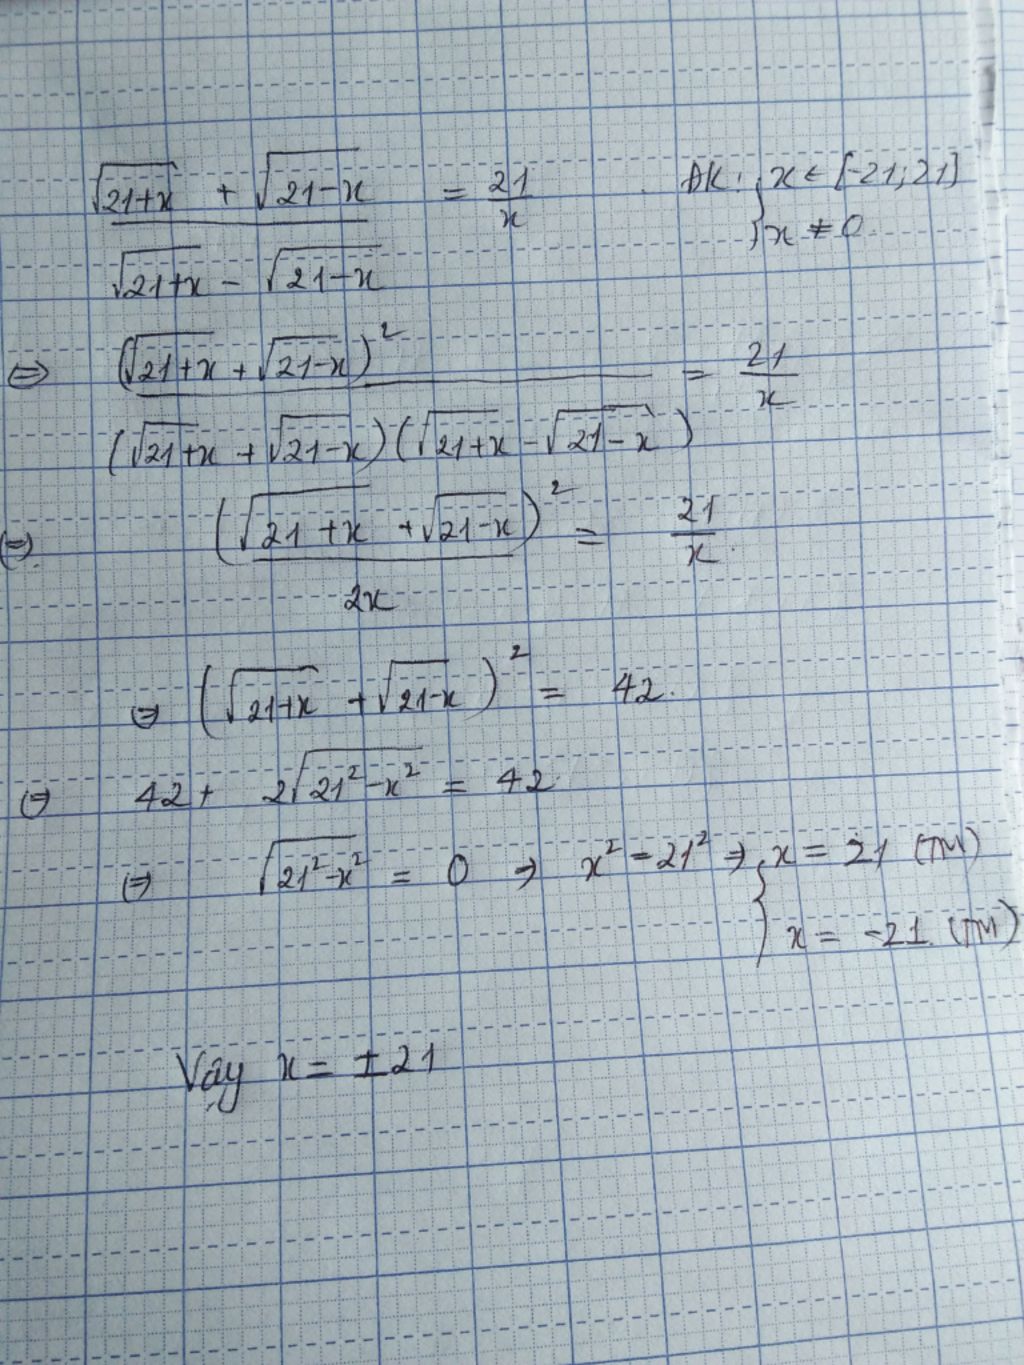 (√(21+x) + √(21-x)) / (√(21+x) - √(21-x)) = 21/x . ĐK: { x ∈ [-21; 21]
x ≠ 0.
⇔ (√(21+x) + √(21-x))² / ((√(21+x) + √(21-x))(√(21+x) - √(21-x))) = 21/x
⇔ (√(21+x) + √(21-x))² / 2x = 21/x.
⇔ (√(21+x) + √(21-x))² = 42.
⇔ 42 + 2√(21²-x²) = 42.
⇔ √(21²-x²) = 0 ⇒ x² = 21² ⇒ { x = 21 (TM)
x = -21. (TM)
Vậy x = ±21